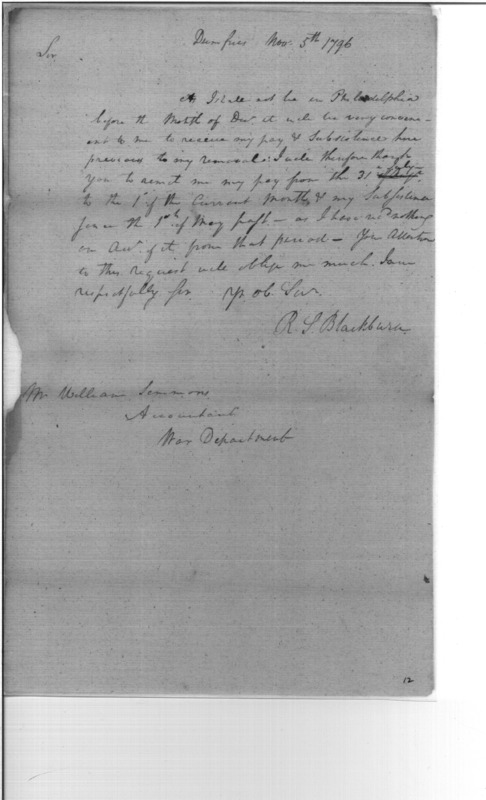 Dumfries Nov. 5th 1796
Sir
As I shall not be in Philadelphia
before the Month of Decr it will be very conveni-
ent to me to receive my pay & Subsistence here
previous to my removal. I will therefore thank
you to remit me my pay from the 31st July
to the 1st of the Current Month & my Subsistence
from the 1st of May past. - as I have recd nothing
on Acct of it from that period - Your Attention
to this request will oblige me much. I am
respectfully Sir Yr. ob. Sert.
R. S. Blackburn
Mr William Simmons
Accountant
War Department
12